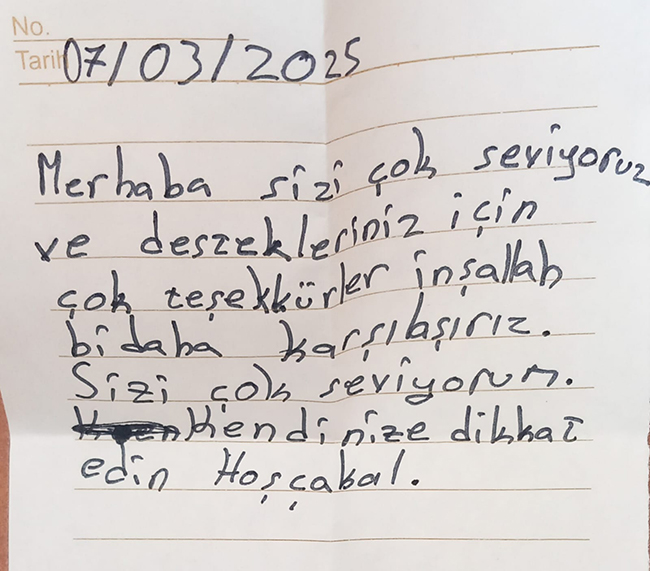 No.
Tarih 07/03/2025
Merhaba sizi çok seviyoruz
ve destekleriniz için
çok teşekkürler inşallah
bidaha karşılaşırız.
Sizi çok seviyorum.
Kendinize dikkat
edin Hoşçakal.